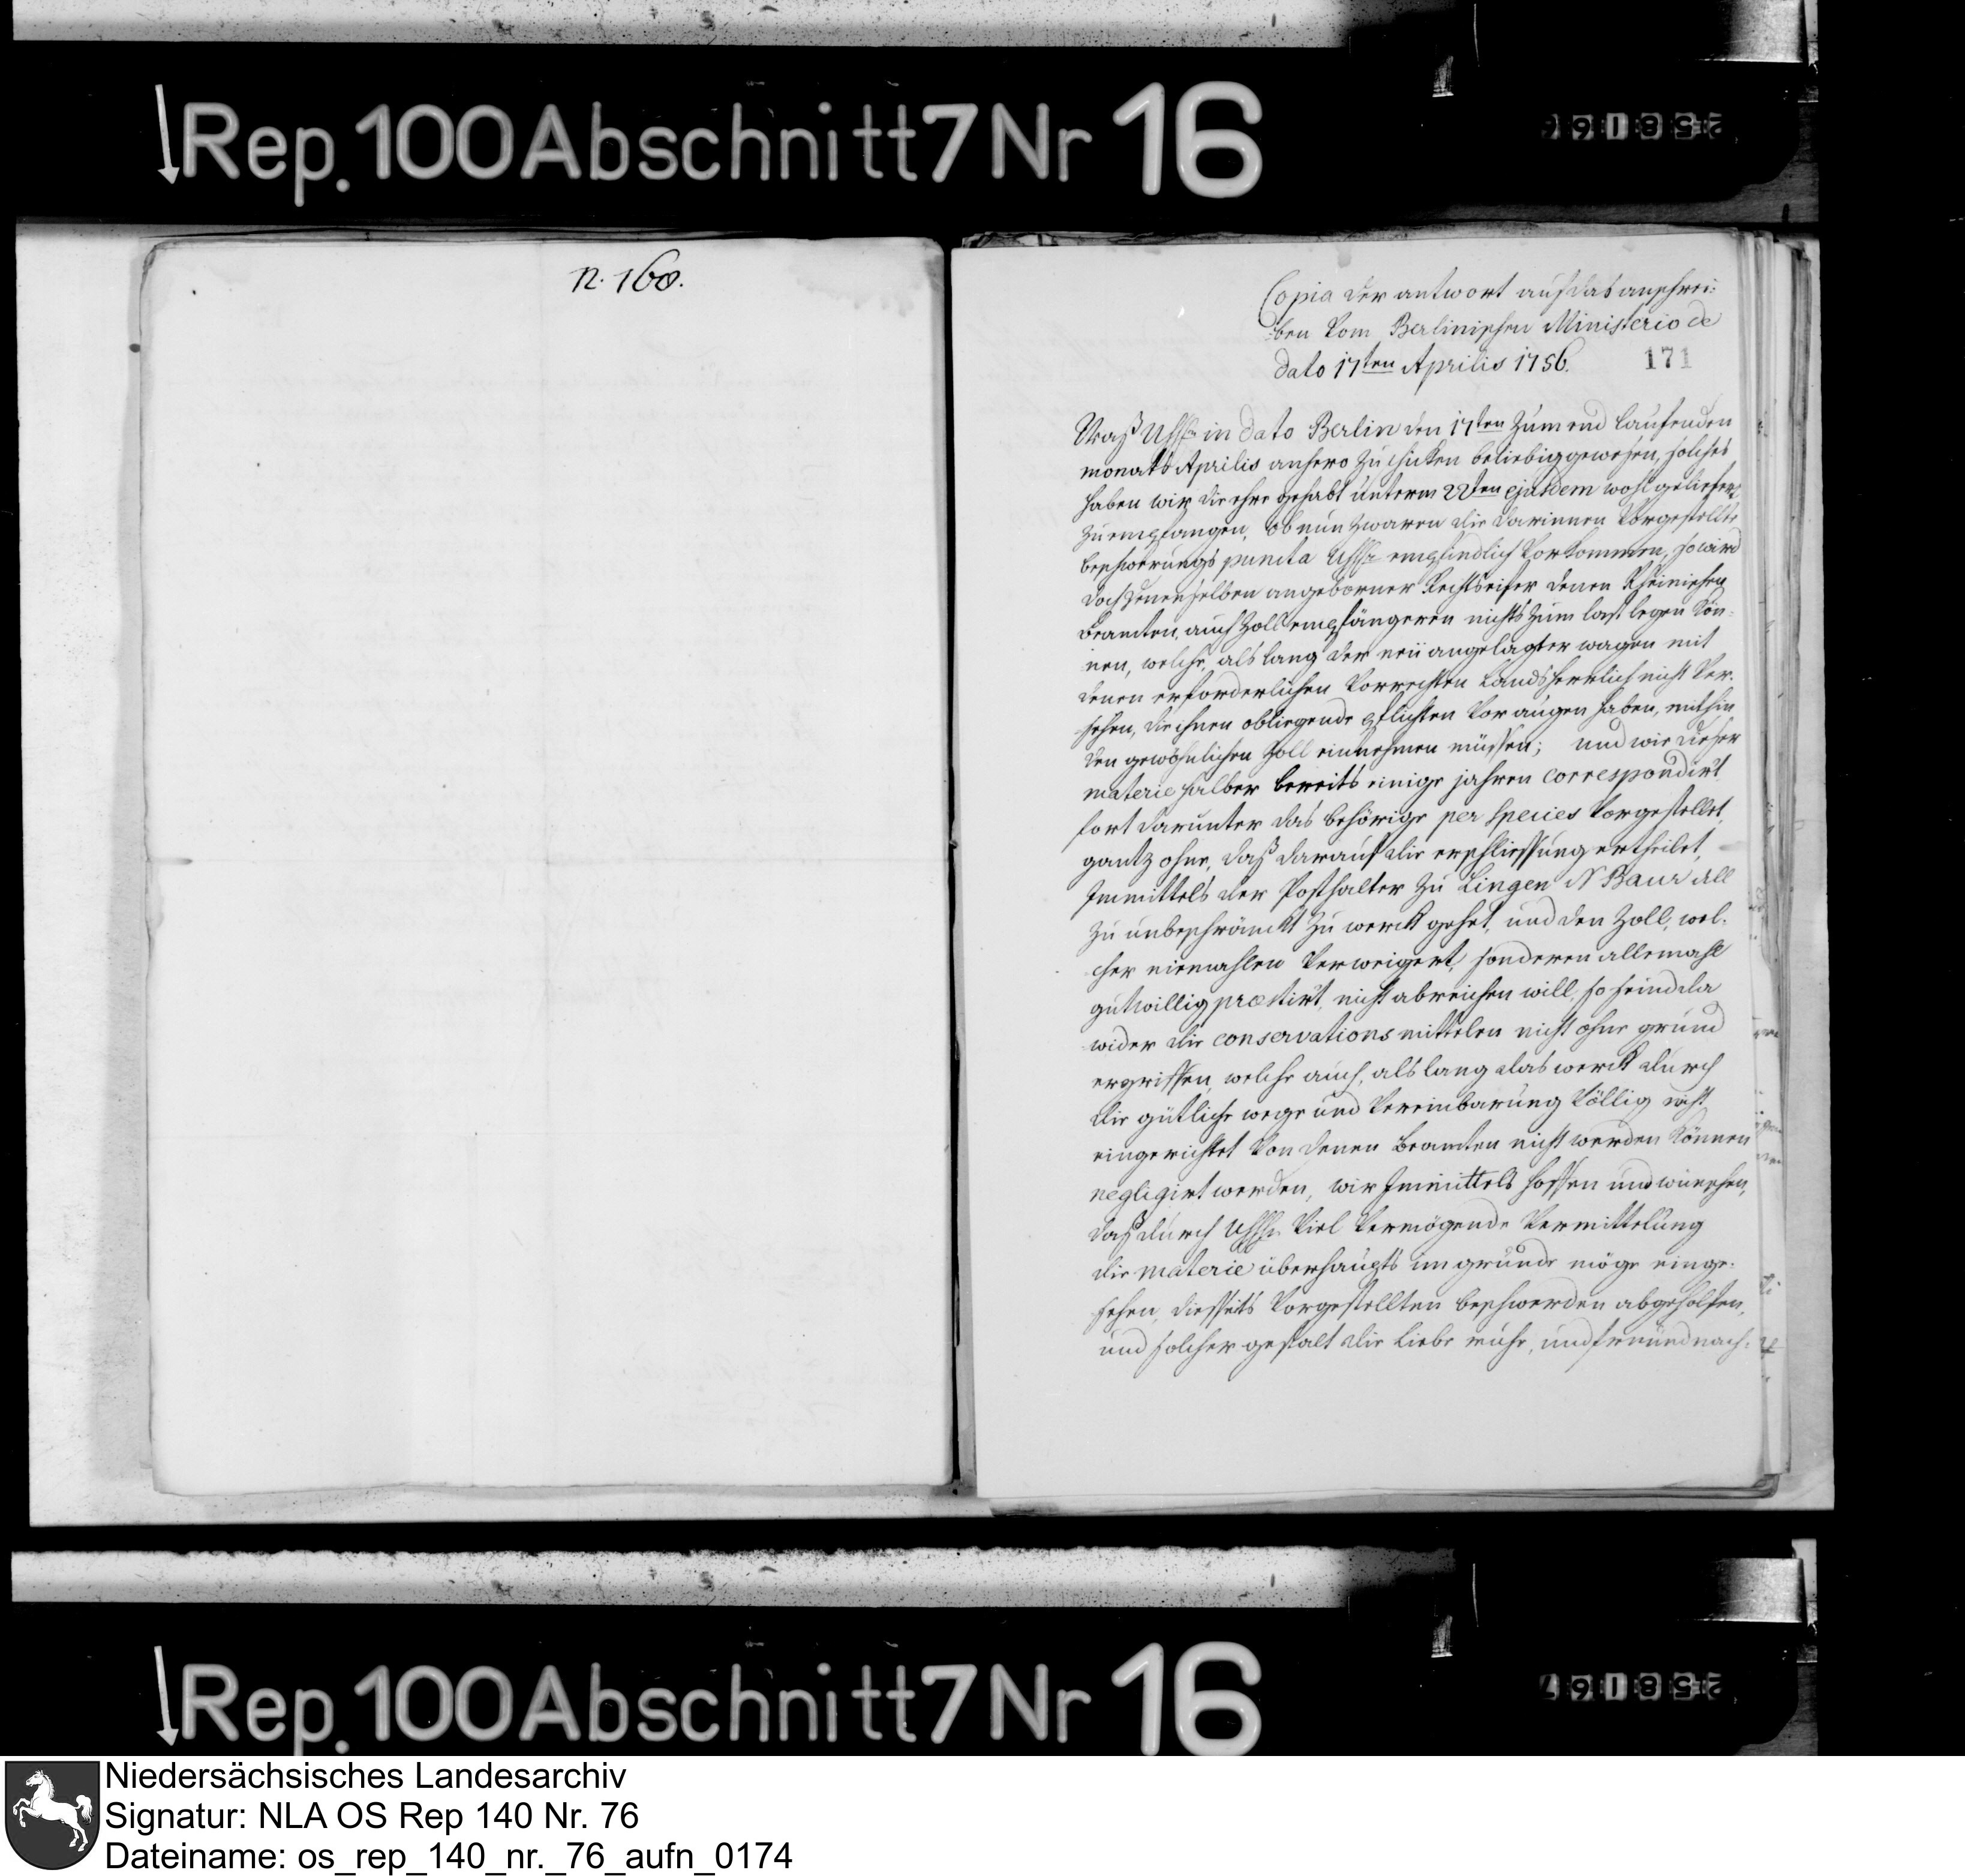 Rep. 100 Abschnitt 7 Nr 16
n. 168.
Copia der antwort auf das anschrei:
:ben Vom Berlinischen Ministerio de
dato 17ten Aprilis 1756.
171
Waß in dato Berlin den 17ten zum end lauffenden
monats Aprilis anhero zu schicken beliebig gewesen, solches
haben wir die ehre gehabt unterm 22ten ejusdem wohl geliefert
zu empfangen, Ob nun zwaren die darinnen Vorgestellte
beschwerungs puncta empfindlich Vorkommen, so wird
doch denenselben angeborner Rechtseifer denen Rheinischen
Beamten, auch Zoll empfängeren nichts zum last legen kön-
nen, welche, als lang der neü angelagter wagen mit
denen erforderlichen Vorrechten Landsherrlich nicht Ver-
sehen, die ihnen obliegende pflichten Vor augen haben, mithin
den gewöhnlichen Zoll einnehmen müssen; und wie dieser
materie halber bereits einige jahren correspondirt
fort darunter das behörige per Species Vorgestellet,
gantz ohne, daß darauf die erschliessung ertheilet,
Immittels der Posthalter zu Lingen N Baur all
zu unbeschränckt zu werck gehet, und den Zoll, wel-
cher niemahlen Verweigert, sonderen allemahl
gutwillig præstirt, nicht abreichen will, so seind da
wider die conservations mittelen nicht ohne grund
ergriffen, welche auch, als lang das werck durch
die gütliche wege und Vereinbarung Völlig nicht
eingerichtet Von denen Beamten nicht werden können
negligirt werden, wir Immittels hoffen und wünschen,
daß durch Viel Vermögende Vermittelung
die materie überhaupts im grunde möge einge-
sehen, diesseits Vorgestellten beschwerden abgeholfen,
und solcher gestalt die Liebe ruhe, und freündnach-
Rep. 100 Abschnitt 7 Nr 16
Niedersächsisches Landesarchiv
Signatur: NLA OS Rep 140 Nr. 76
Dateiname: os_rep_140_nr._76_aufn_0174